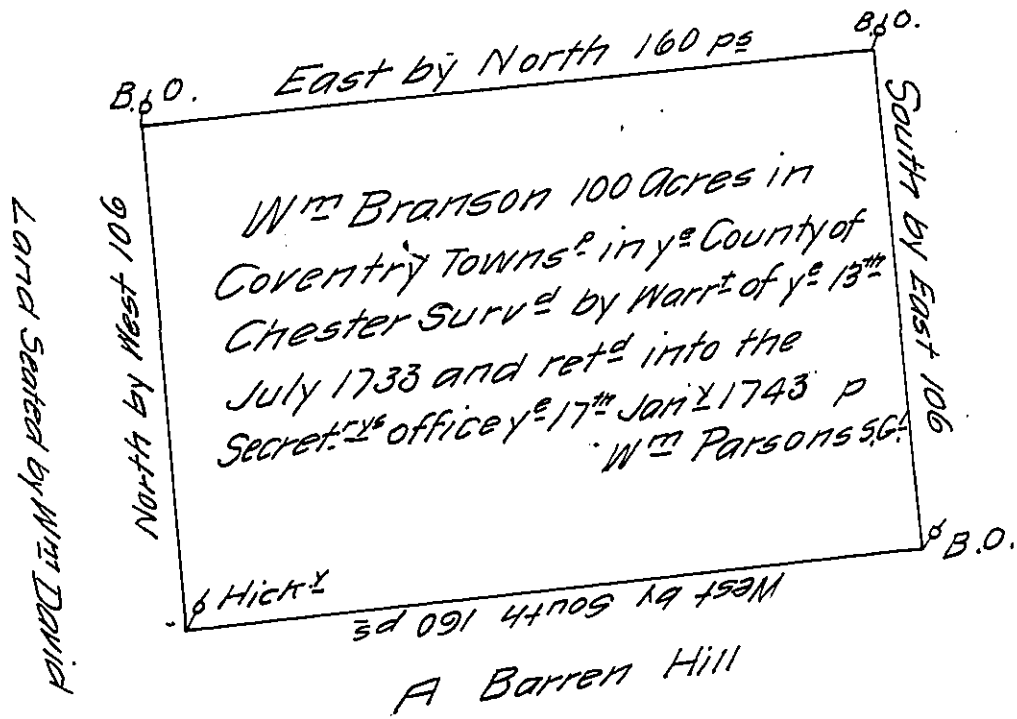 B. O.
East by North 160 ps
B. O.
South by East 106
Wm Branson 100 Acres in
Coventry Townsp in ye County of
Chester Survd by Warrt of ye 13th
July 1733 and retd into the
Secretrys office ye 17th Jany 1743 p
Wm Parsons S.Gl
North by West 106
Land Seated by Wm David
Hicky
B.O.
West by South 160 ps
A Barren Hill